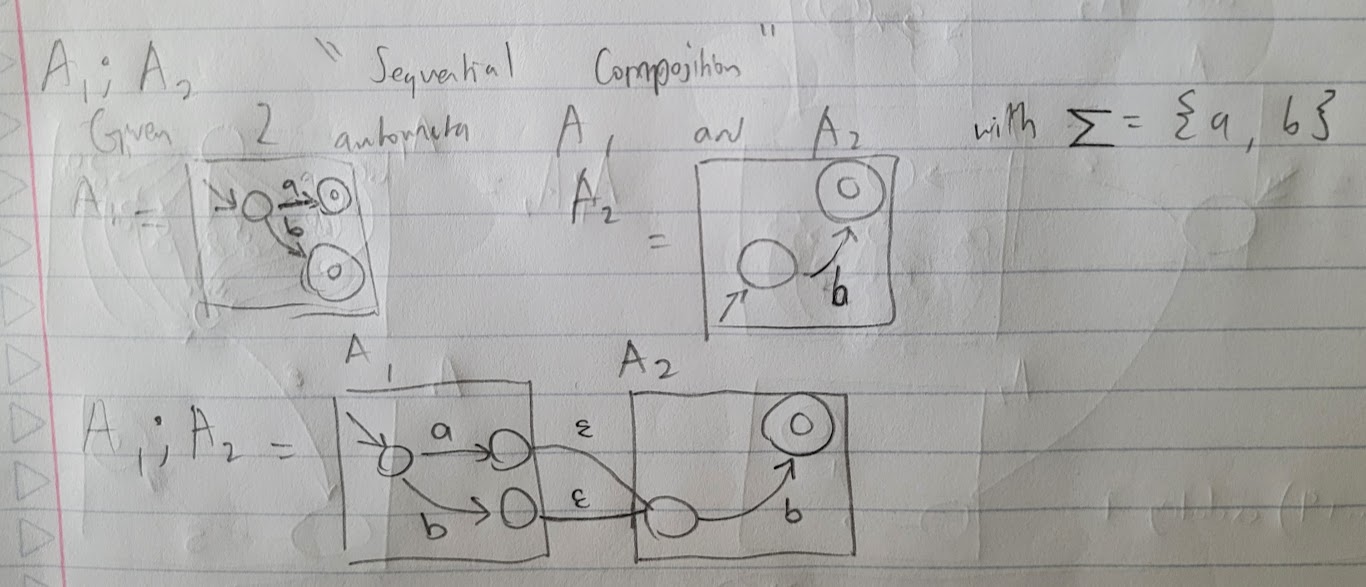 A₁; A₂ "Sequential Composition"
Given 2 automata A₁ and A₂ with Σ = {a, b}
A₁ = a b
A₂ = b
A₁ A₂
A₁; A₂ = a b ε ε b